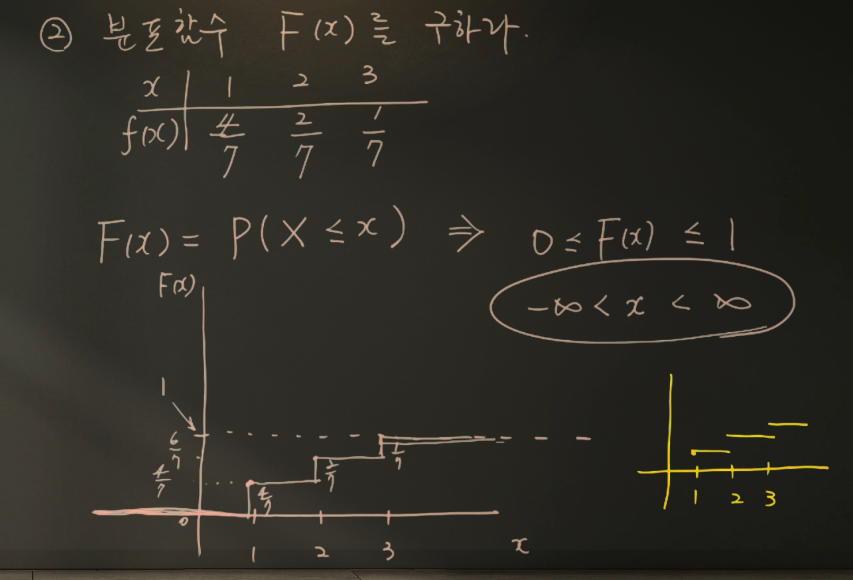 ② 분포함수 F(x)를 구하라.
x 1 2 3
f(x) 4/7 2/7 1/7
F(x) = P(X ≤ x) ⇒ 0 ≤ F(x) ≤ 1
-∞ < x < ∞
F(x)
1
6/7
4/7
4/7 2/7 1/7
0
1 2 3 x
1 2 3